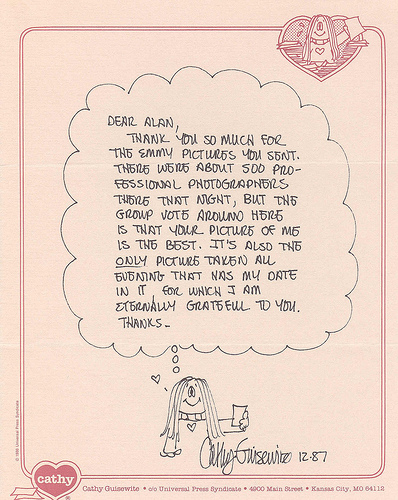 DEAR ALAN,
THANK YOU SO MUCH FOR
THE EMMY PICTURES YOU SENT.
THERE WERE ABOUT 500 PRO-
FESSIONAL PHOTOGRAPHERS
THERE THAT NIGHT, BUT THE
GROUP VOTE AROUND HERE
IS THAT YOUR PICTURE OF ME
IS THE BEST. IT'S ALSO THE
ONLY PICTURE TAKEN ALL
EVENING THAT HAS MY DATE
IN IT, FOR WHICH I AM
ETERNALLY GRATEFUL TO YOU.
THANKS–
Cathy Guisewite 12.87
cathy
®
Cathy Guisewite • c/o Universal Press Syndicate • 4900 Main Street • Kansas City, MO 64112